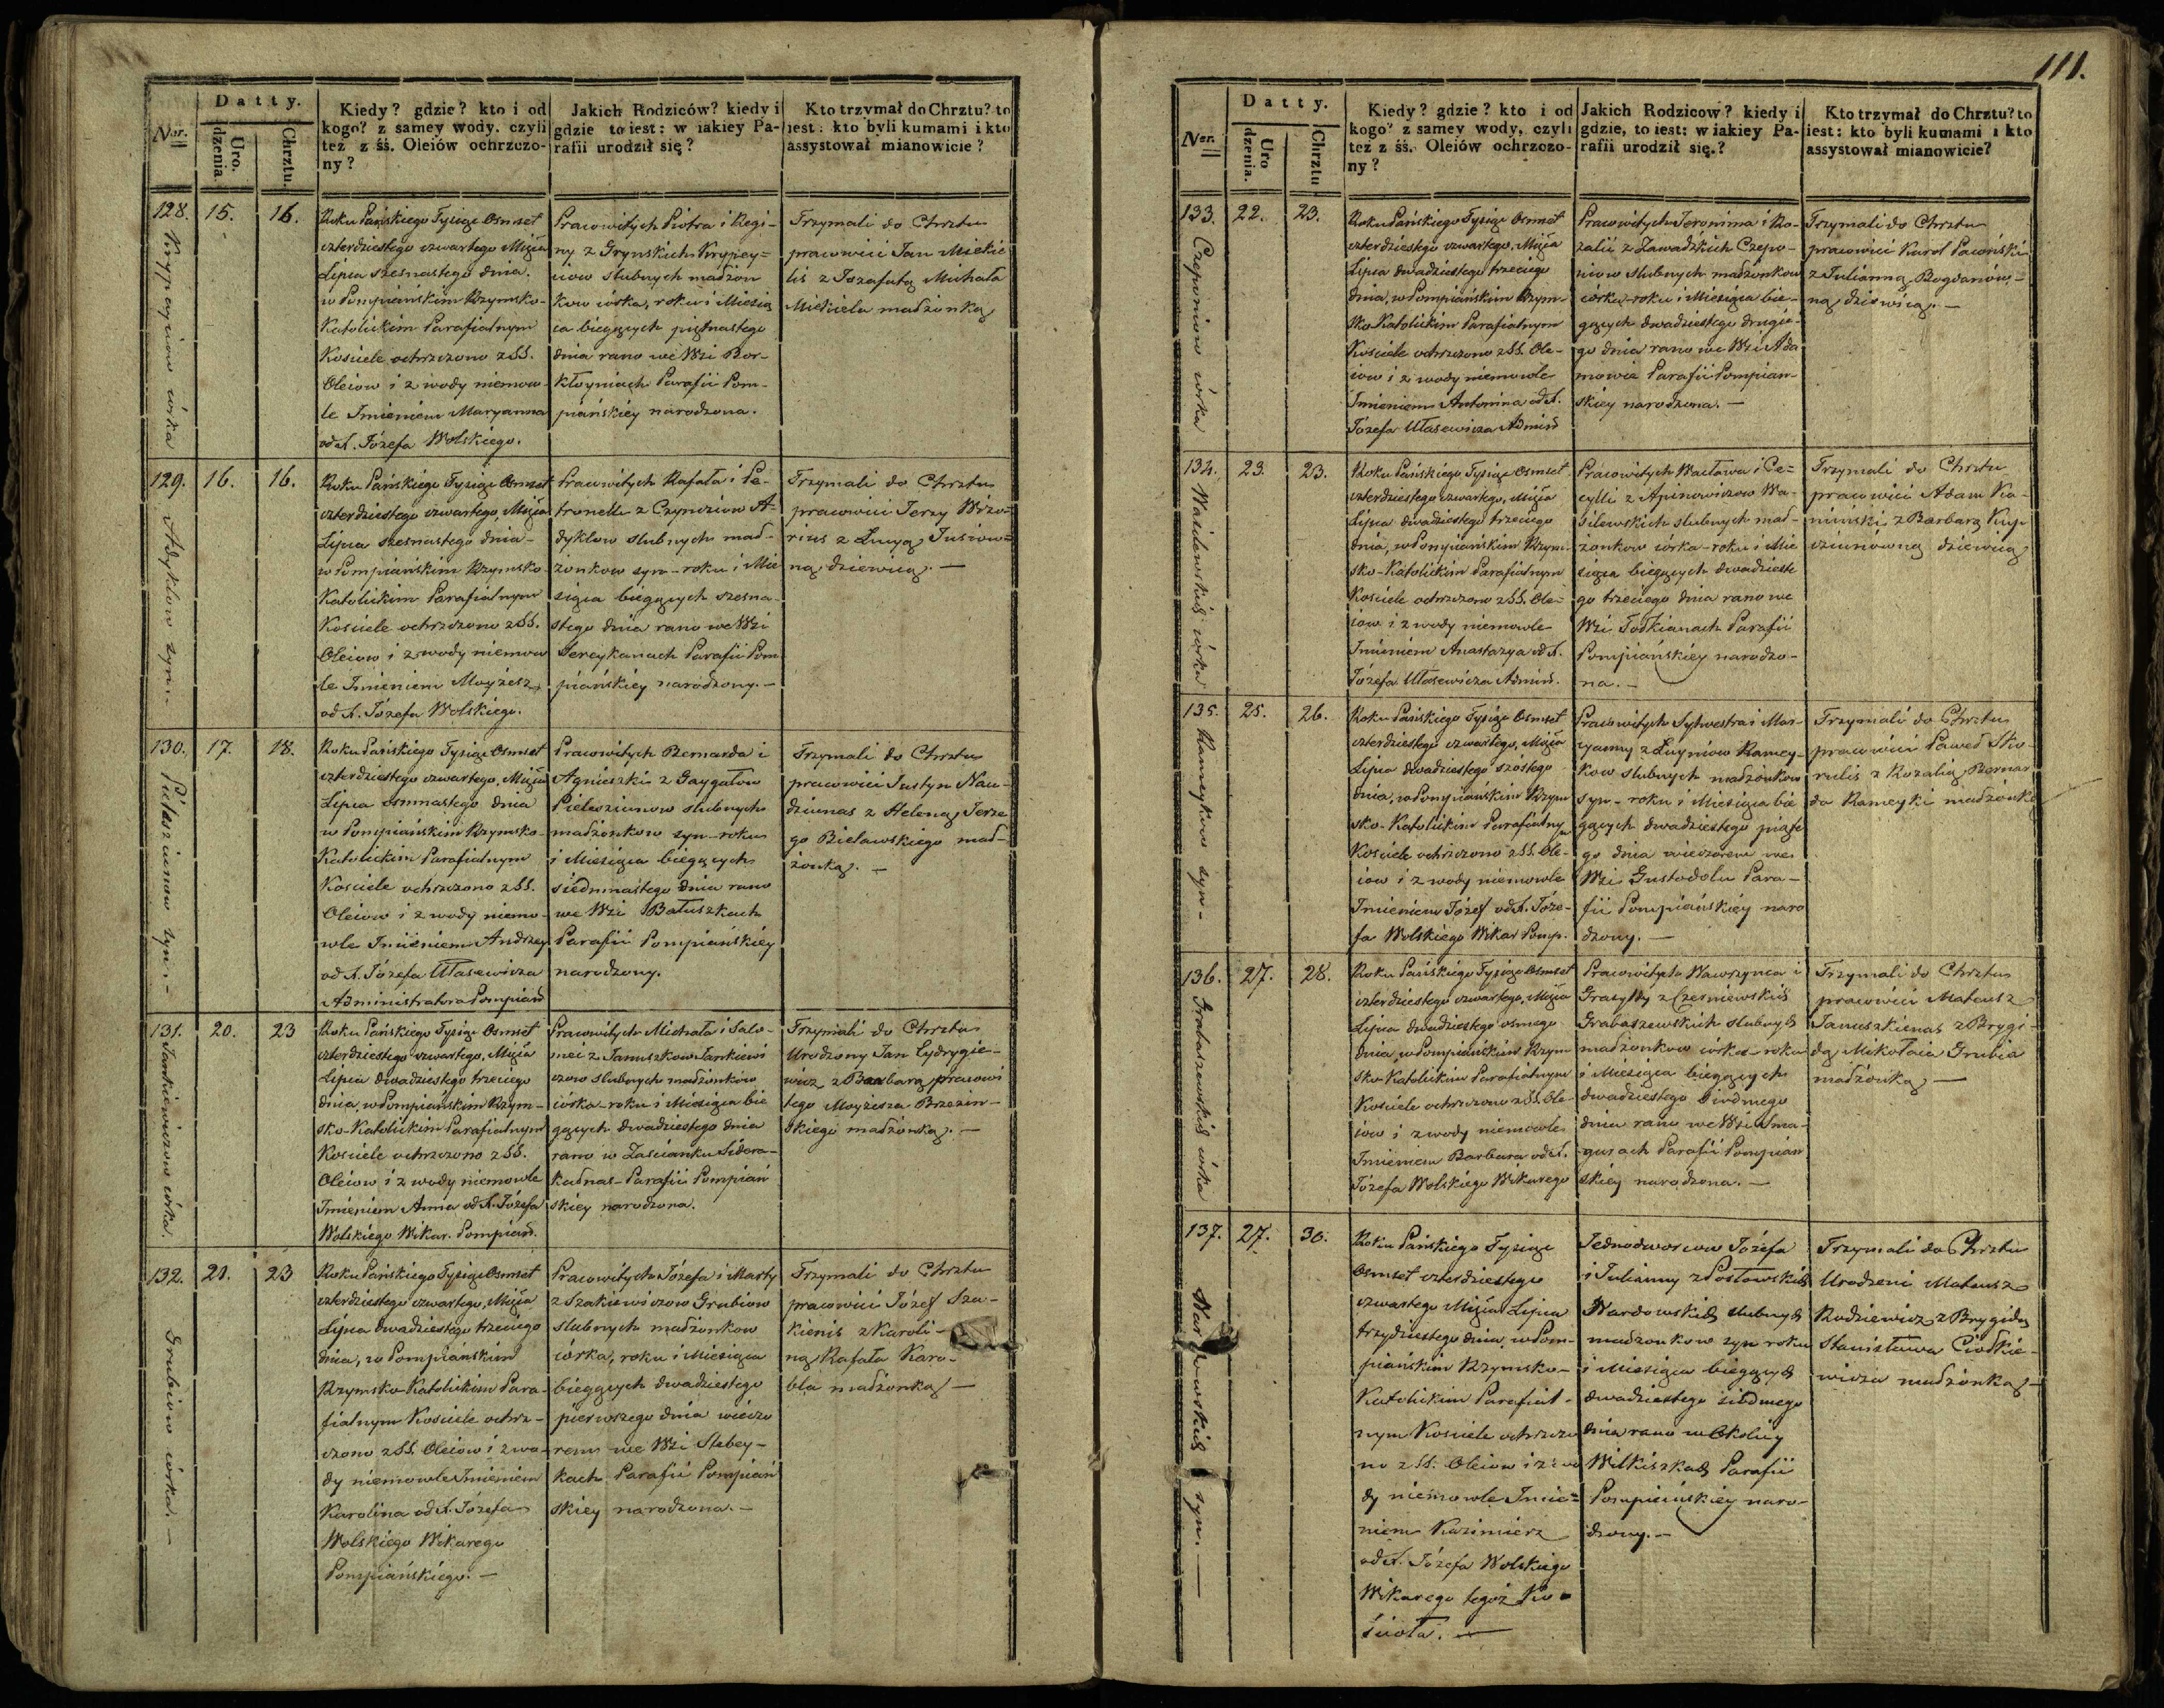 111.
Datty.
Ner.
Uro.
dzenia.
Chrztu.
Kiedy? gdzie? kto i od
kogo? z samey wody, czyli
też z śś. Oleiów ochrzczo-
ny?
Jakich Rodziców? kiedy i
gdzie to iest: w iakiey Pa-
rafii urodził się?
Kto trzymał do Chrztu? to
iest: kto byli kumami i kto
assystował mianowicie?
128.
Krypeyciow córka
15.
16.
Roku Pańskiego Tysiąc Osmset
czterdziestego czwartego Miąca
Lipca szesnastego dnia.
w Pompiańskim Rzymsko-
Katolickim Parafialnym
Kosciele ochrzczono z SS.
Oleiow i z wody niemow-
le Imieniem Maryanna
od X. Józefa Wolskiego.
Pracowitych Piotra i Regi-
ny z Grynskich Krypey-
ciow slubnych małżon
kow córka, roku i Miesią
ca biegących piętnastego
dnia rano we Wsi Bor-
kłoyniach Parafii Pom-
piańskiey narodzona.
Trzymali do Chrztu
pracowici Jan Miekie
lis z Jozafatą Michała
Miekiela małżonką
129.
Adyklow syn. -
16.
16.
Roku Pańskiego Tysiąc Osmset
czterdziestego czwartego, Miąca
Lipca szesnastego dnia-
w Pompiańskim Rzymsko-
Katolickim Parafialnym
Kosciele ochrzczono z SS.
Oleiow i z wody niemow
le Imieniem Moyżesz,
od X. Józefa Wolskiego.
Pracowitych Rafała i Pe-
tronelli z Czyndziow A-
dyklow slubnych mał-
żonkow syn - roku i Mie
siąca biegących szesna-
stego dnia rano we Wsi
Sereykanach Parafii Pom
piańskiey narodzony. -
Trzymali do Chrztu
pracowici Jerzy Wizo-
rius z Łucyą Jusiow-
ną dziewicą. -
130.
Pielusziunow syn. -
17.
18.
Roku Pańskiego Tysiąc Osmset
czterdziestego czwartego, Miąca
Lipca osmnastego dnia
w Pompiańskim Rzymsko-
Katolickim Parafialnym
Kosciele ochrzczono z SS.
Oleiow i z wody niemo-
wle Imieniem Andrzey
od X. Józefa Ułasewicza
Administratora Pompiań
Pracowitych Bernarda i
Agnieszki z Gaygałow
Pielusziunow slubnych
małżonkow syn - roku
i Miesiąca biegących
siedmnastego dnia rano
we Wsi Bałuszkach
Parafii Pompiańskiey
narodzony.
Trzymali do Chrztu
pracowici Justyn Nau-
dziunas z Heleną Jerze
go Bielawskiego mał-
żonką. -
131.
Jankiewiczow córka.
20.
23
Roku Pańskiego Tysiąc Osmset
czterdziestego czwartego, Miąca
Lipca dwadziestego trzeciego
dnia, w Pompiańskim Rzym-
sko-Katolickim Parafialnym
Kosciele ochrzczono z SS.
Oleiow i z wody niemowle
Imieniem Anna od X. Józefa
Wolskiego Wikar. Pompiań.
Pracowitych Michała i Salo-
mei z Januszkow Jankiewi
czow slubnych małżonkow
córka - roku i Miesiąca bie
gących dwadziestego dnia
rano w Zaścianku Sidora-
kalnas - Parafii Pompiań
skiey narodzona.
Trzymali do Chrztu
Urodzony Jan Cydrygie-
wicz z Barbarą pracowi
tego Moyżesza Brzezin-
skiego małżonką. -
132.
Grubiow córka. -
21.
23
Roku Pańskiego Tysiąc Osmset
czterdziestego czwartego, Miąca
Lipca dwadziestego trzeciego
dnia, w Pompiańskim
Rzymsko-Katolickim Para-
fialnym Kosciele ochrz-
czono z SS. Oleiow i z wo-
dy niemowle Imieniem
Karolina od X. Józefa
Wolskiego Wikarego
Pompiańskiego. -
Pracowitych Józefa i Marty
z Szakiewiczow Grubiow
slubnych małżonkow
córka, roku i Miesiąca
biegących dwadziestego
pierwszego dnia wieczo
rem we Wsi Slebey-
kach Parafii Pompiań
skiey narodzona. -
Trzymali do Chrztu
pracowici Józef Szu-
kienis z Karoli-
ną Rafała Karo-
bla małżonką -
Datty.
Ner.
Uro
dzenia.
Chrztu
Kiedy? gdzie? kto i od
kogo? z samey wody, czyli
też z śś. Oleiów ochrzczo-
ny?
Jakich Rodzicow? kiedy i
gdzie, to iest: w iakiey Pa-
rafii urodził się.?
Kto trzymał do Chrztu? to
iest: kto byli kumami i kto
assystował mianowicie?
133.
Czeponiow córka
22.
23.
Roku Pańskiego Tysiąc Osmset
czterdziestego czwartego, Miąca
Lipca dwadziestego trzeciego
dnia, w Pompiańskim Rzym-
sko Katolickim Parafialnym
Kosciele ochrzczono z SS. Ole-
iow i z wody niemowle
Imieniem Antonina od X.
Józefa Ułasewicza Admiń
Pracowitych Jeronima i Ro-
zalii z Zawadzkich Czepo-
niow slubnych małżonkow
córka - roku i Miesiąca bie-
gących dwadziestego drugie-
go dnia rano we Wsi Ada
mowie Parafii Pompiań-
skiey narodzona. -
Trzymali do Chrztu
pracowici Karol Pacoński
z Julianną Bogdanów-
ną dziewicą. -
134.
Wasilewskich córka
23.
23.
Roku Pańskiego Tysiąc Osmset
czterdziestego czwartego, Miąca
Lipca dwadziestego trzeciego
dnia, w Pompiańskim Rzym-
sko-Katolickim Parafialnym
Kosciele ochrzczono z SS. Ole-
iow i z wody niemowle
Imieniem Anastazya od X.
Józefa Ułasewicza Admiń.
Pracowitych Wacława i Ce-
cylii z Apinowiczow Wa-
silewskich slubnych mał-
żonkow córka - roku i Mie
siąca biegących dwadzieste
go trzeciego dnia rano we
Wsi Todkianach Parafii
Pompiańskiey narodzo-
na. -
Trzymali do Chrztu
pracowici Adam Ka-
miński z Barbarą Kup
cziunówną dziewicą
135.
Rameykow syn -
25.
26.
Roku Pańskiego Tysiąc Osmset
czterdziestego czwartego, Miąca
Lipca dwadziestego szóstego
dnia, w Pompiańskim Rzym
sko-Katolickim Parafialnym
Kosciele ochrzczono z SS. Ole-
iow i z wody niemowle
Imieniem Józef od X. Józe-
fa Wolskiego Wikar Pomp.
Pracowitych Sylwestra i Mar-
yanny z Łucyniow Ramey-
kow slubnych małżonkow
syn - roku i Miesiąca bie
gących dwadziestego piąte
go dnia wieczorem we
Wsi Gustodolu Para-
fii Pompiańskiey naro
dzony. -
Trzymali do Chrztu
pracowici Paweł Sko-
rulis z Rozalią Bernar
da Rameyki małżonką
136.
Grabaszewskich córka
27.
28.
Roku Pańskiego Tysiąc Osmset
czterdziestego czwartego, Miąca
Lipca dwadziestego osmego
dnia, w Pompiańskim Rzym
sko-Katolickim Parafialnym
Kosciele ochrzczono z SS. Ole-
iow i z wody niemowle
Imieniem Barbara od X.
Józefa Wolskiego Wikarego
Pracowitych Wawrzynca i
Gracylly z Czerniewskich
Grabaszewskich slubnych
małżonkow córka - roku
i Miesiąca biegących
dwadziestego siodmego
dnia rano we Wsi Sma-
gurach Parafii Pompiań
skiey narodzona. -
Trzymali do Chrztu
pracowici Mateusz
Januszkienas z Brygi-
dą Mikołaia Grubia
małżonką -
137.
syn. -
27.
30.
Roku Pańskiego Tysiąc
Osmset czterdziestego
czwartego Miąca Lipca
trzydziestego dnia, w Pom-
piańskim Rzymsko-
Katolickim Parafial-
nym Kosciele ochrzczo
no z SS. Oleiow i z wo
dy niemowle Imie-
niem Kazimierz
od X. Józefa Wolskiego
Wikarego tegoż Ko-
ścioła. -
Jednodworcow Józefa
i Julianny z Posłowskich
Nardowskich slubnych
małżonkow syn roku
i Miesiąca biegących
dwadziestego siodmego
dnia rano w Okolicy
Wilkiszkach Parafii
Pompiańskiey naro-
dzony. -
Trzymali do Chrztu
Urodzeni Mateusz
Rodziewicz z Brygidą
Stanisława Ciodkie-
wicza małżonką -